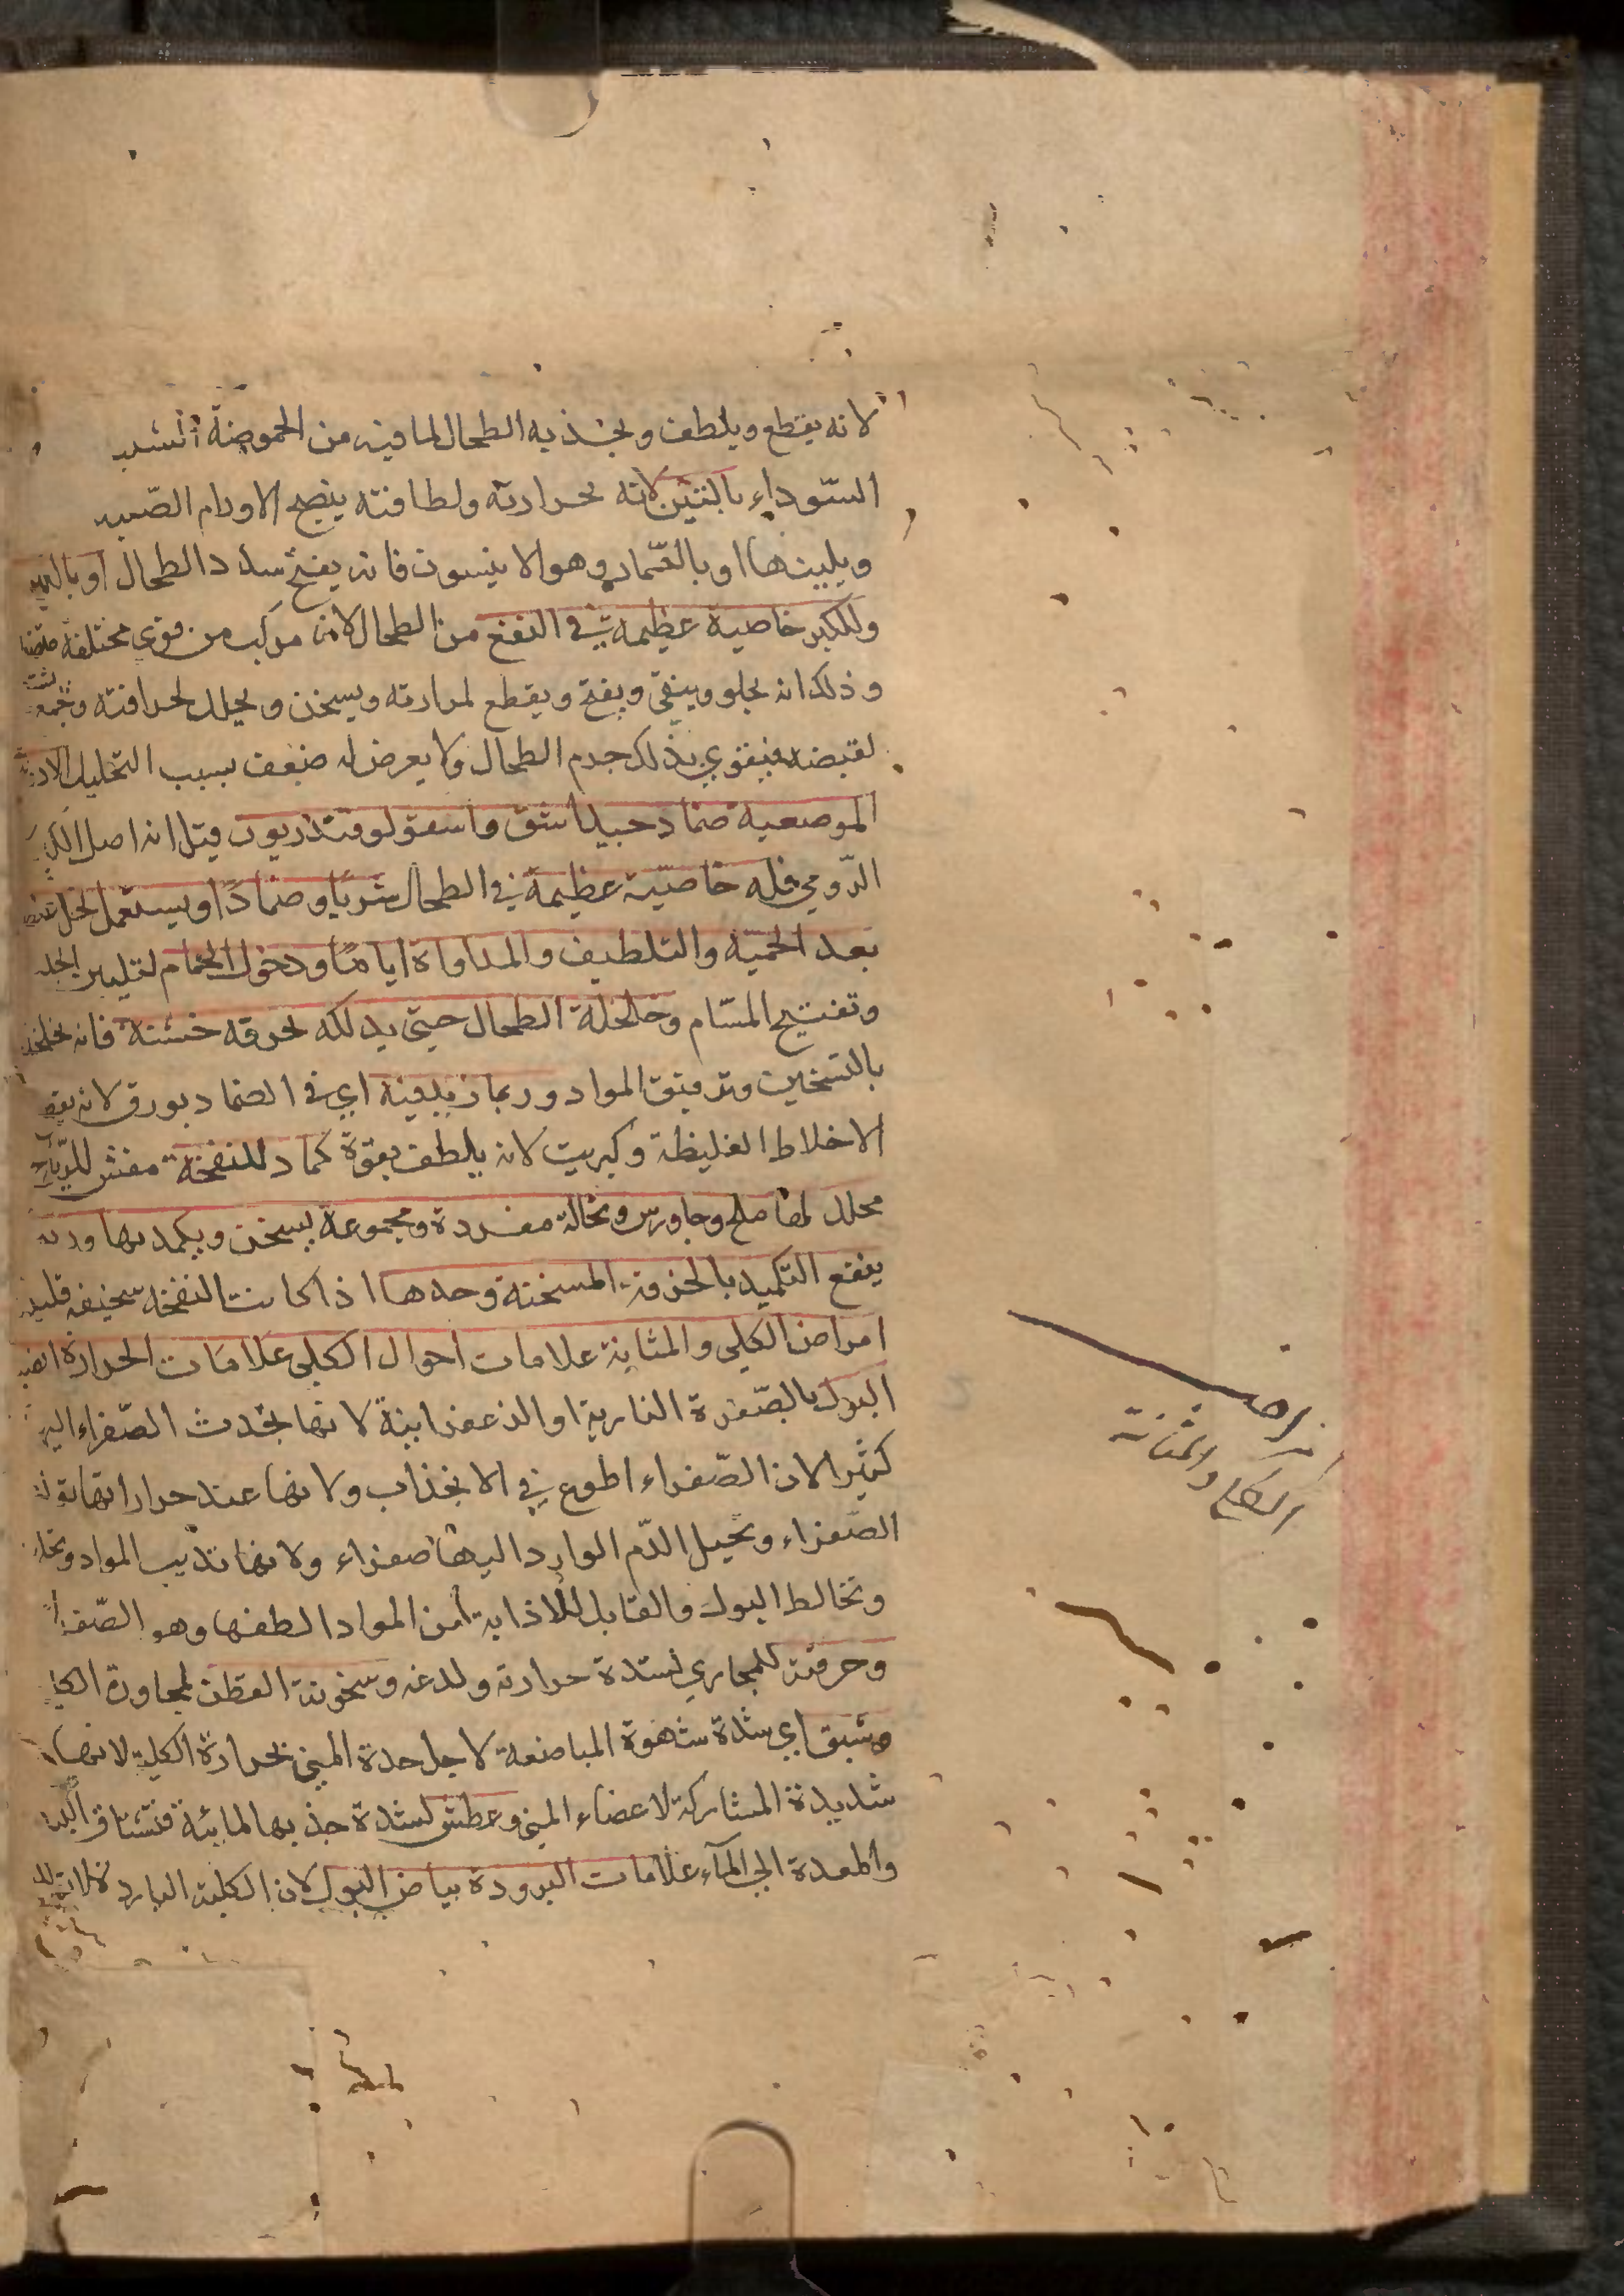 لانه يقطع ويلطف ويجذبه الطحال لما فيه من الحموضة
السّوداء بالتين لانه بحرارته ولطافته ينضج الاورام الصّلبه
ويلينها او بالقمّاد وهو الانيسون فانه يفتح سدد الطحال او بالكبر
وللكبر خاصية عظيمة في النفع من الطحال لانه مركب من قوى مختلفة
وذلك انه يجلو وينقي ويفتح ويقطع لمرارته ويسخن ويحلل لحرافته ويجمع
لقبضه فيقوي بذلك جرم الطحال ولا يعرض له ضعف بسبب التحليل الادوية
الموضعية ضماد حبيل اشق واسقولوقندريون قيل انه اصل الكبر
الرّومي فله خاصيّة عظيمة في الطحال شربًا وضمادًا ويستعمل الخل
بعد الحميّه والتلطيف والمداواة ايامًا ودخول الحمام لتليين الجلد
وتفتيح المسّام وخلخلة الطحال حيتى يدلكه بخرقه خشنة فانه يخلخل
بالتسخين وترقيق المواد وربما زيد فيه اي في الضماد بورق لانه يقطع
الاخلاط الغليظة وكبريت لانه يلطف بقوة كماد للنفخة مفش للرّياح
محلل لها ملح وجاورس ونخالة مفردة ومجموعة يسخن ويكمد بها وربما
ينفع التكميد بالخرقة المسخنة وحدها اذا كانت النفخة سخيفه قليلة
امراض الكلى والمثانة علامات احوال الكلى علامات الحرارة انصباغ
البول بالصّفرة النارية او الزعفرانية لانها تجذب الصّفراء اليها
كثيرا لان الصّفراء اطوع في الانجذاب ولانها عند حرارتها تولد
الصّفراء وتحيل الدّم الوارد اليها صفراء ولانها تذيب المواد وتحلل
وتخالط البول والقابل للاذابة من المواد الطفها وهو الصّفراء
وحرقته للمجاري لشدة حرارته ولدغه وسخونة القطن لمجاورة الكلى
وشبق اي شدة شهوة المباضعة لاجل حدة المني بحرارة الكلية لانها
شديدة المشاركة لاعضاء المني وعطش لشدة جذبها المائية فتشتاق الكبد
والمعدة الي المآء علامات البرودة بياض البول لان الكلية الباردة
امراض
الكلى والمثانة